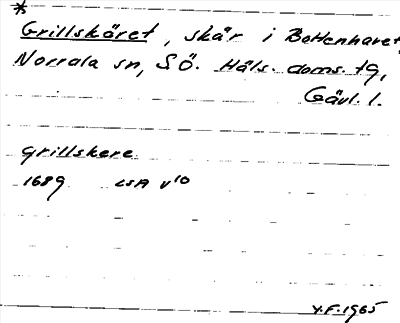 *
Grillskäret, skär i Bottenhavet,
Norrala sn, SÖ. Häls. doms. tg,
Gävl. l.
Grillskere
1689 LSA V10
Y.F. 1965